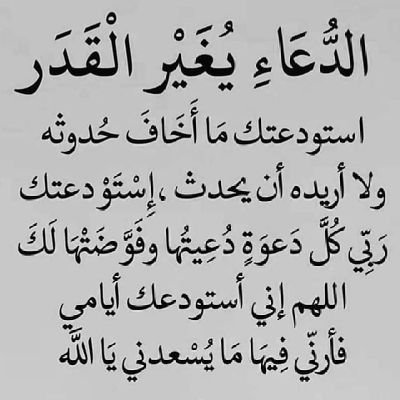 الدُّعَاءِ يُغَيْر الْقَدَر
استودعتك مَا أَخَافَ حُدوثه
ولا أريده أن يحدث ،إِسْتَوْدعتك
رَبِّي كُلَّ دَعوَةٍ دُعِيتُها وفَوَّضَتْهَا لَكَ
اللهم إني أستودعك أيامي
فأرنّي فِيهَا مَا يُسْعدني يَا اللَّه